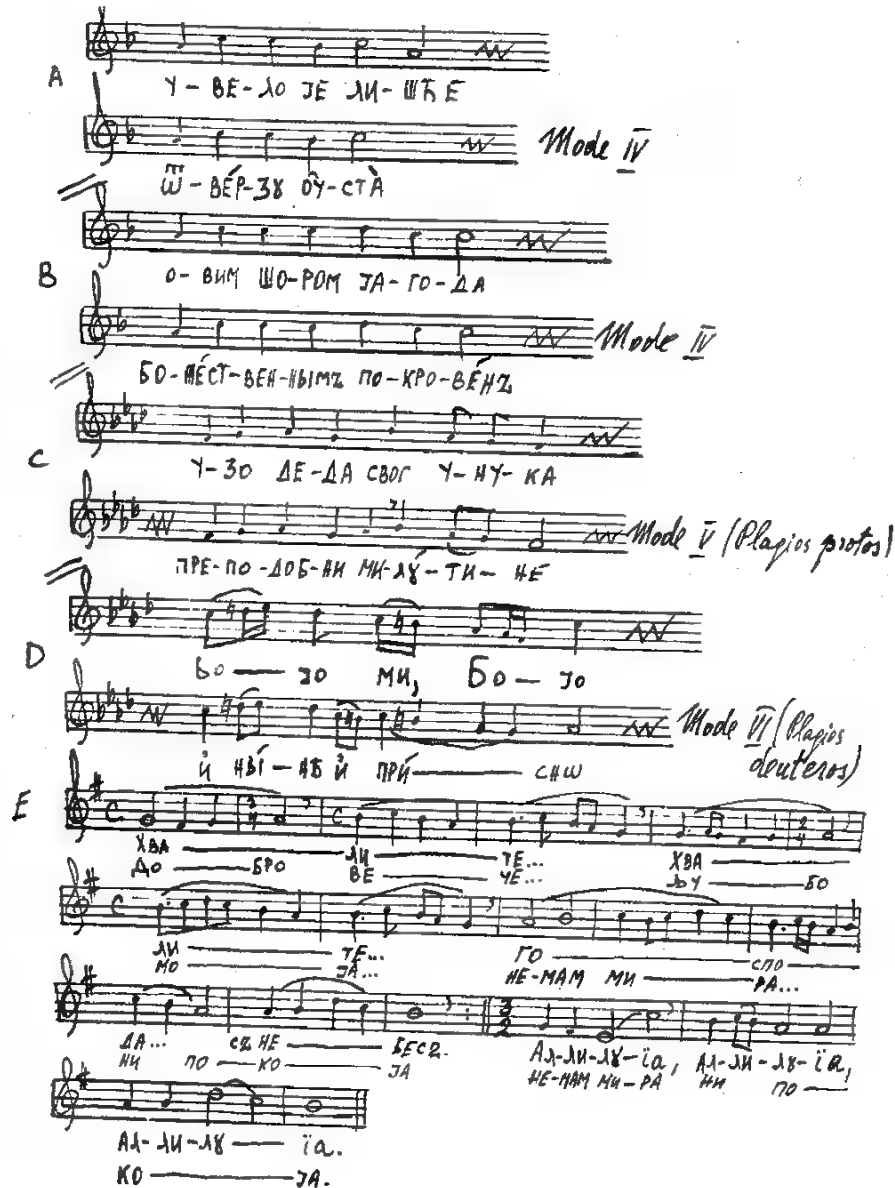 A
У - ВЕ - ЛО ЈЕ ЛИ - ШЋЕ
Mode IV
Ѿ - ВЕ́Р - ЗꙊ ОУ҆ - СТА̀
B
О - ВИМ ШО - РОМ ЈА - ГО - ДА
Mode IV
БО - ЖЕ́СТ - ВЕН - НЫМЪ ПО - КРО - ВЕ́НЪ
C
У - ЗО ДЕ - ДА СВОГ У - НУ - КА
Mode V (Plagios protos)
ПРЕ - ПО - ДОБ - НИ МИ - ЛꙊ́ - ТИ - НЕ
D
БО — ЈО МИ, БО — ЈО
Mode VI (Plagios deuteros)
И҆ НЫ́ — НѢ И҆ ПРИ́ — СНѠ
E
ХВА — ЛИ — ТЕ... ХВА —
ДО — БРО ВЕ — ЧЕ... ЉУ — БО
ЛИ — ТЕ... ГО — СПО —
МО — ЈА... НЕ - МАМ МИ — РА...
ДА... СЪ НЕ — БЕСЪ. АЛ - ЛИ - ЛꙊ - ЇА, АЛ - ЛИ - ЛꙊ - ЇА,
НИ ПО — КО — ЈА НЕ - МАМ МИ - РА НИ ПО —
АЛ - ЛИ - ЛꙊ — ЇА.
КО — ЈА.